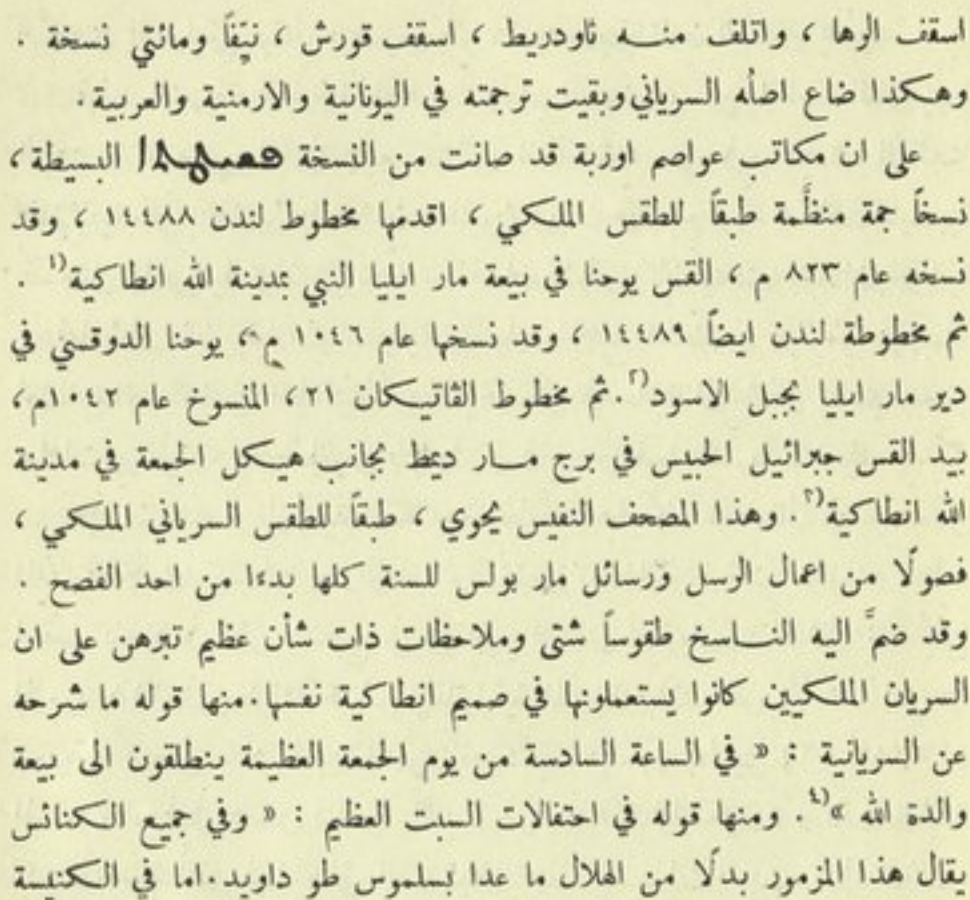 اسقف الرها ، واتلف منه ثاودريط ، اسقف قورش ، نيّفاً ومائتي نسخة .
وهكذا ضاع اصله السرياني وبقيت ترجمته في اليونانية والارمنية والعربية .
على ان مكاتب عواصم اوربة قد صانت من النسخة ܦܫܝܛܬܐ البسيطة ،
نسخاً جمة منظَّمة طبقاً للطقس الملكي ، اقدمها مخطوط لندن ١٤٤٨٨ ، وقد
نسخه عام ٨٢٣ م ، القس يوحنا في بيعة مار ايليا النبي بمدينة الله انطاكية(١ .
ثم مخطوطة لندن ايضاً ١٤٤٨٩ ، وقد نسخها عام ١٠٤٦ م ، يوحنا الدوقسي في
دير مار ايليا بجبل الاسود(٢ . ثم مخطوط الڤاتيكان ٢١ ، المنسوخ عام ١٠٤٢م ،
بيد القس جبرائيل الحبيس في برج مار ديمط بجانب هيكل الجمعة في مدينة
الله انطاكية(٣ . وهذا المصحف النفيس يحوي ، طبقاً للطقس السرياني الملكي ،
فصولًا من اعمال الرسل ورسائل مار بولس للسنة كلها بدءا من احد الفصح .
وقد ضمَّ اليه الناسخ طقوساً شتى وملاحظات ذات شأن عظيم تبرهن على ان
السريان الملكيين كانوا يستعملونها في صميم انطاكية نفسها . منها قوله ما شرحه
عن السريانية : « في الساعة السادسة من يوم الجمعة العظيمة ينطلقون الى بيعة
والدة الله »(٤ . ومنها قوله في احتفالات السبت العظيم : « وفي جميع الكنائس
يقال هذا المزمور بدلًا من الهلال ما عدا بسلموس طو داويد . اما في الكنيسة